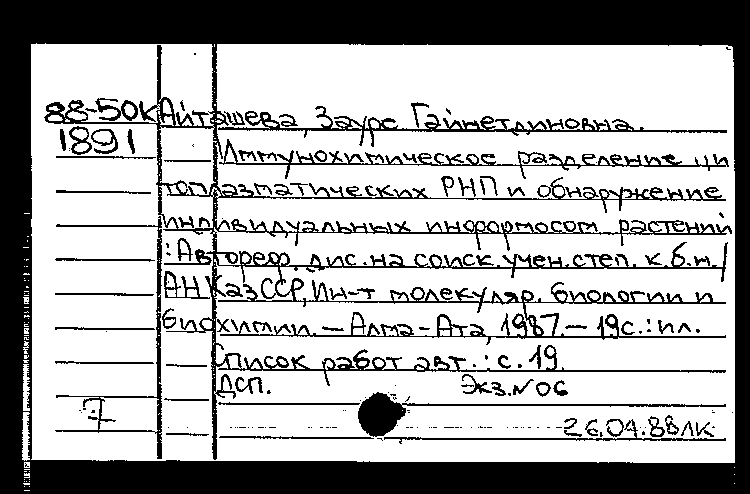 88-50К Айташева, Заура Гайнетдиновна.
1891
Иммунохимическое разделение ци
топлазматических РНП и обнаружение
индивидуальных информосом растений
: Автореф. дис. на соиск. учен. степ. к.б.н./
АН КазССР, Ин-т молекуляр. биологии и
биохимии. — Алма-Ата, 1987. — 19с. : ил.
Список работ авт.: с. 19.
ДСП. Экз. № 06
7
26.04.88 ЛК